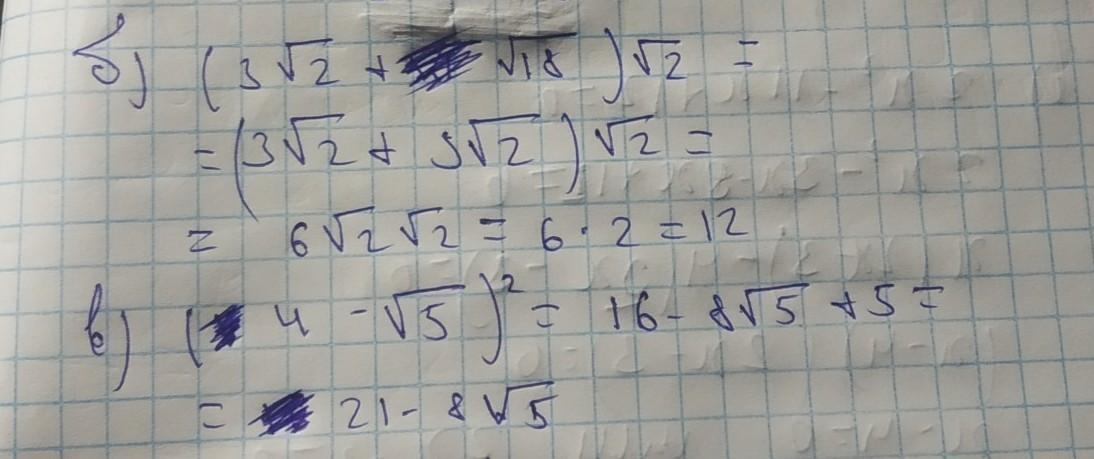 б) (3√2 + √18)√2 =
= (3√2 + 3√2)√2 =
= 6√2√2 = 6·2 = 12
в) (4 - √5)² = 16 - 8√5 + 5 =
= 21 - 8√5